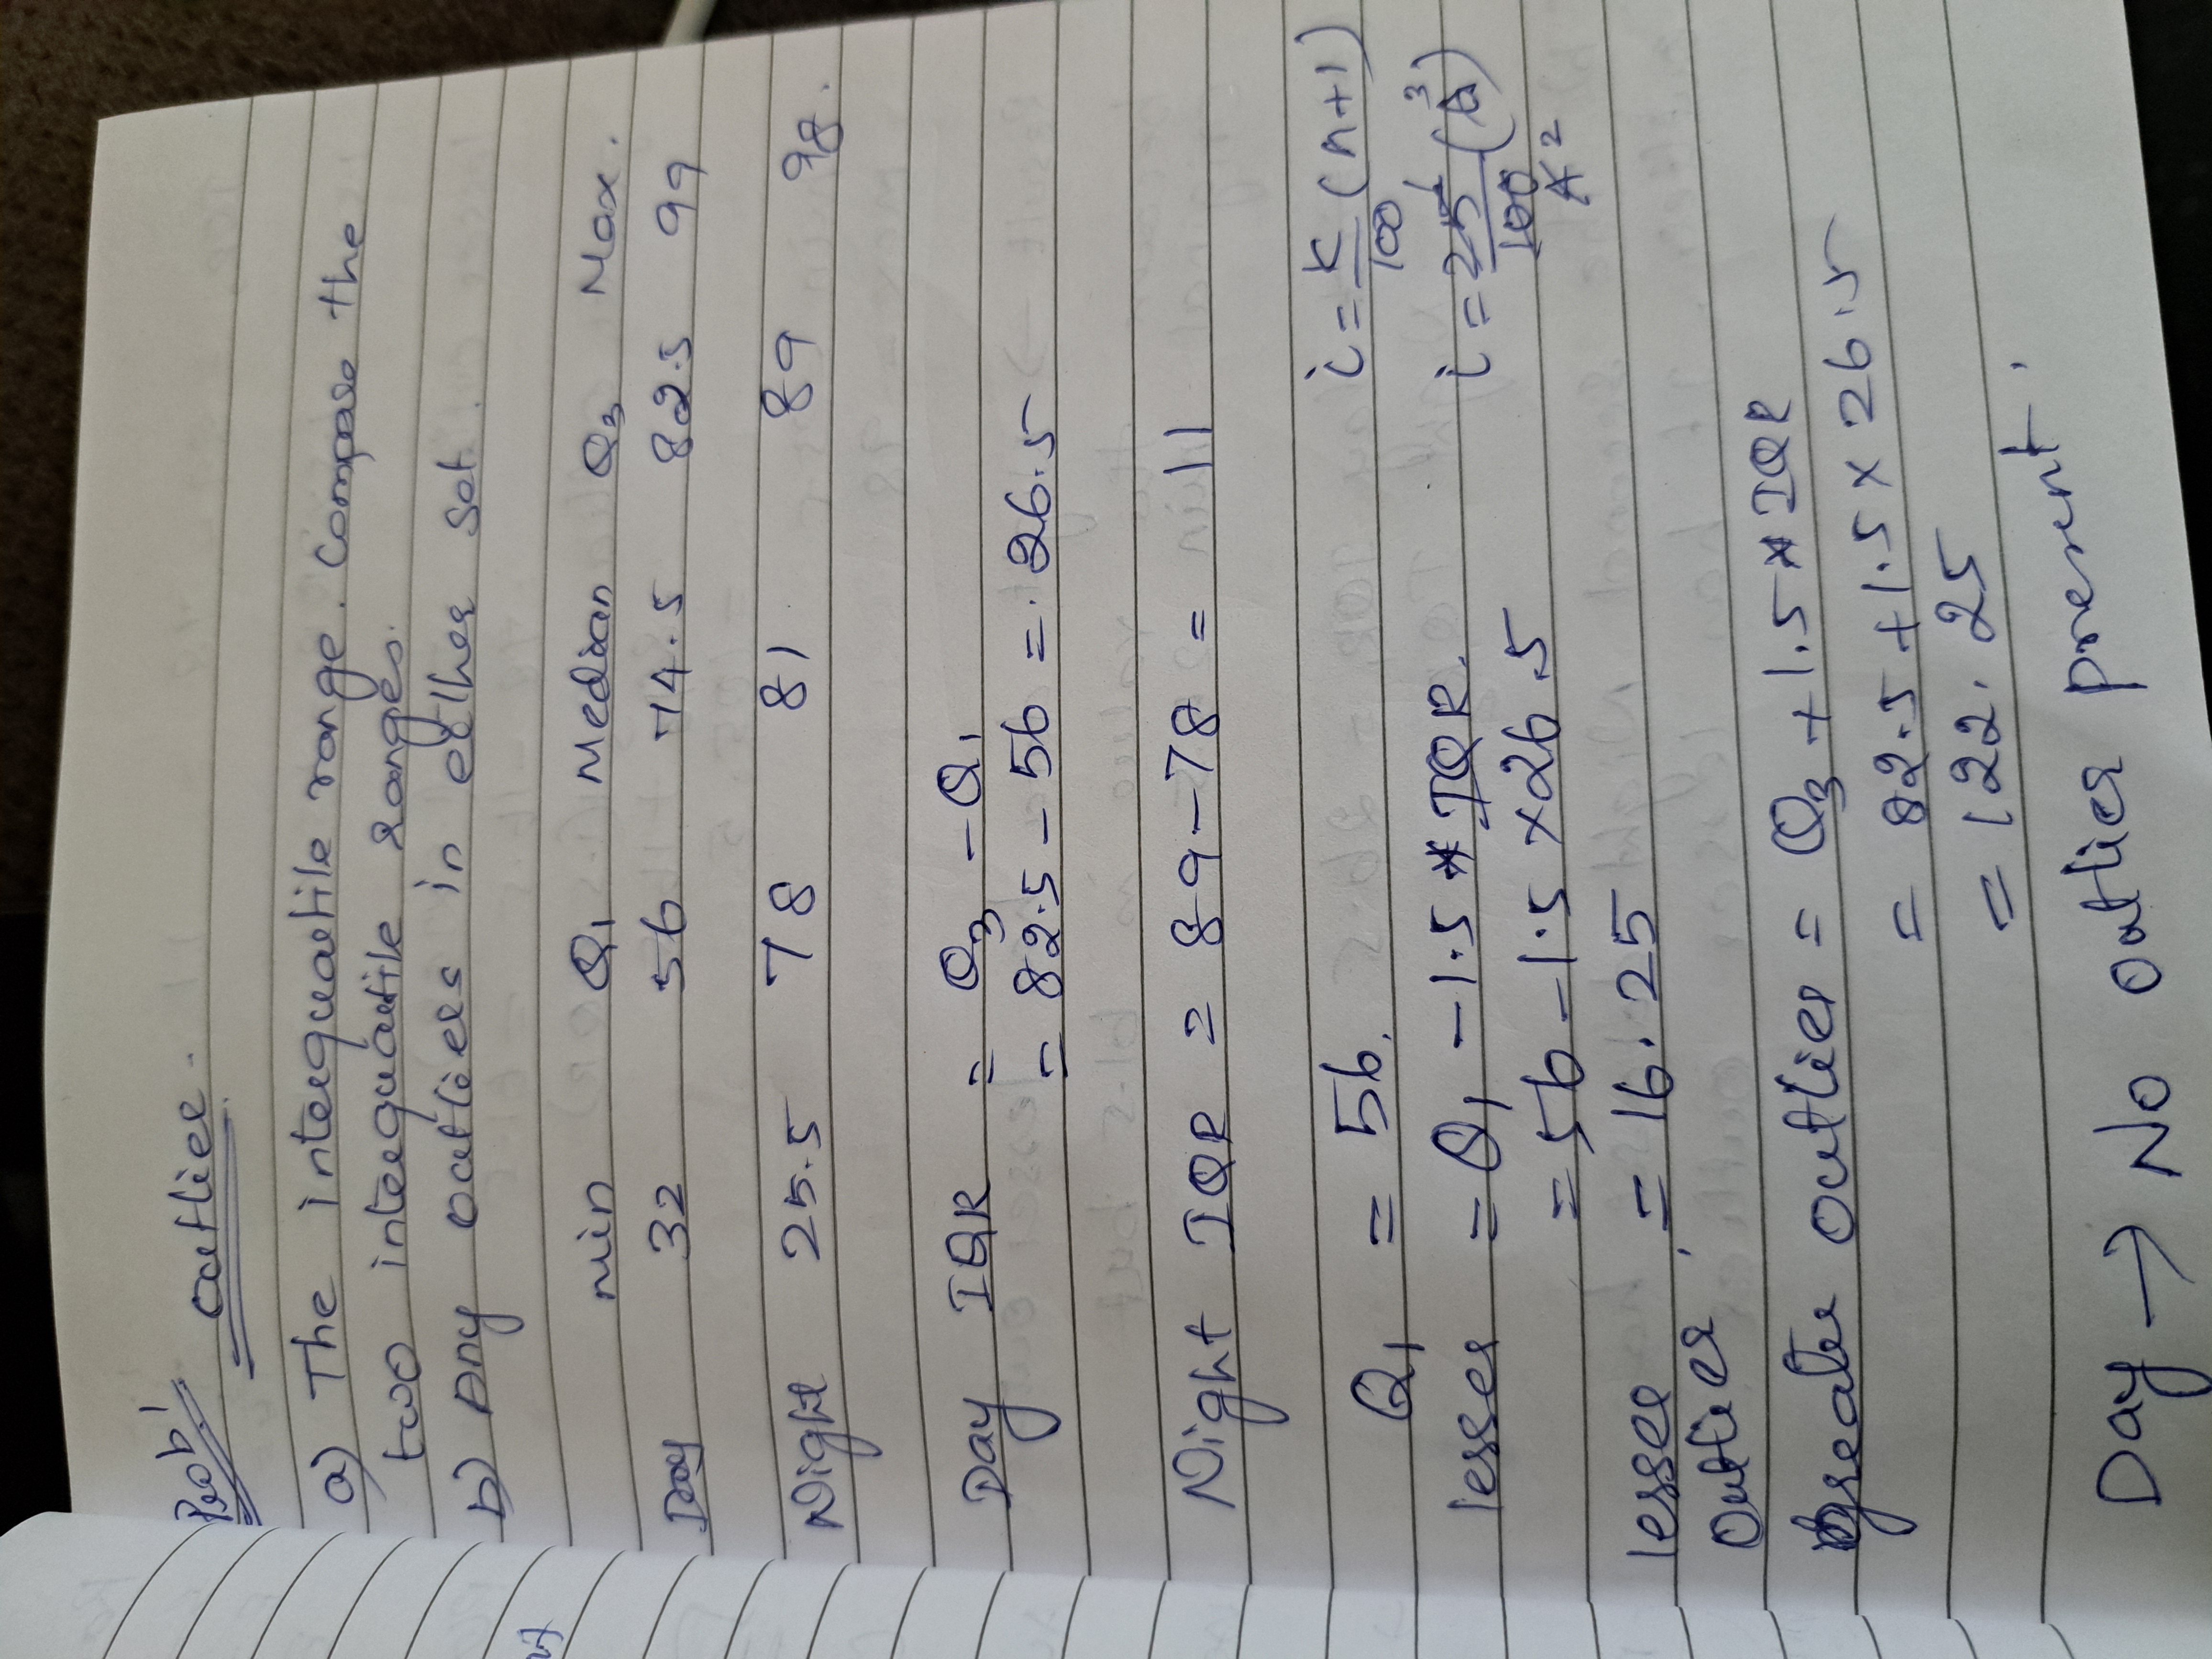 Prob 1
outlier.
a) The interquartile range. Compare the
two interquartile ranges.
b) Any outliers in either set.
Min Q1 Median Q3 Max.
Day 32 56 74.5 82.5 99
Night 25.5 78 81 89 98.
Day IQR = Q3 - Q1
= 82.5 - 56 = 26.5
Night IQR = 89 - 78 = 11
Q1 = 56.
i = K/100 (n+1)
lesser = Q1 - 1.5 * IQR.
= 56 - 1.5 × 26.5
lesser = 16.25
outlier
Greater outlier = Q3 + 1.5 * IQR
= 82.5 + 1.5 × 26.5
= 122.25
Day → No outlier present.